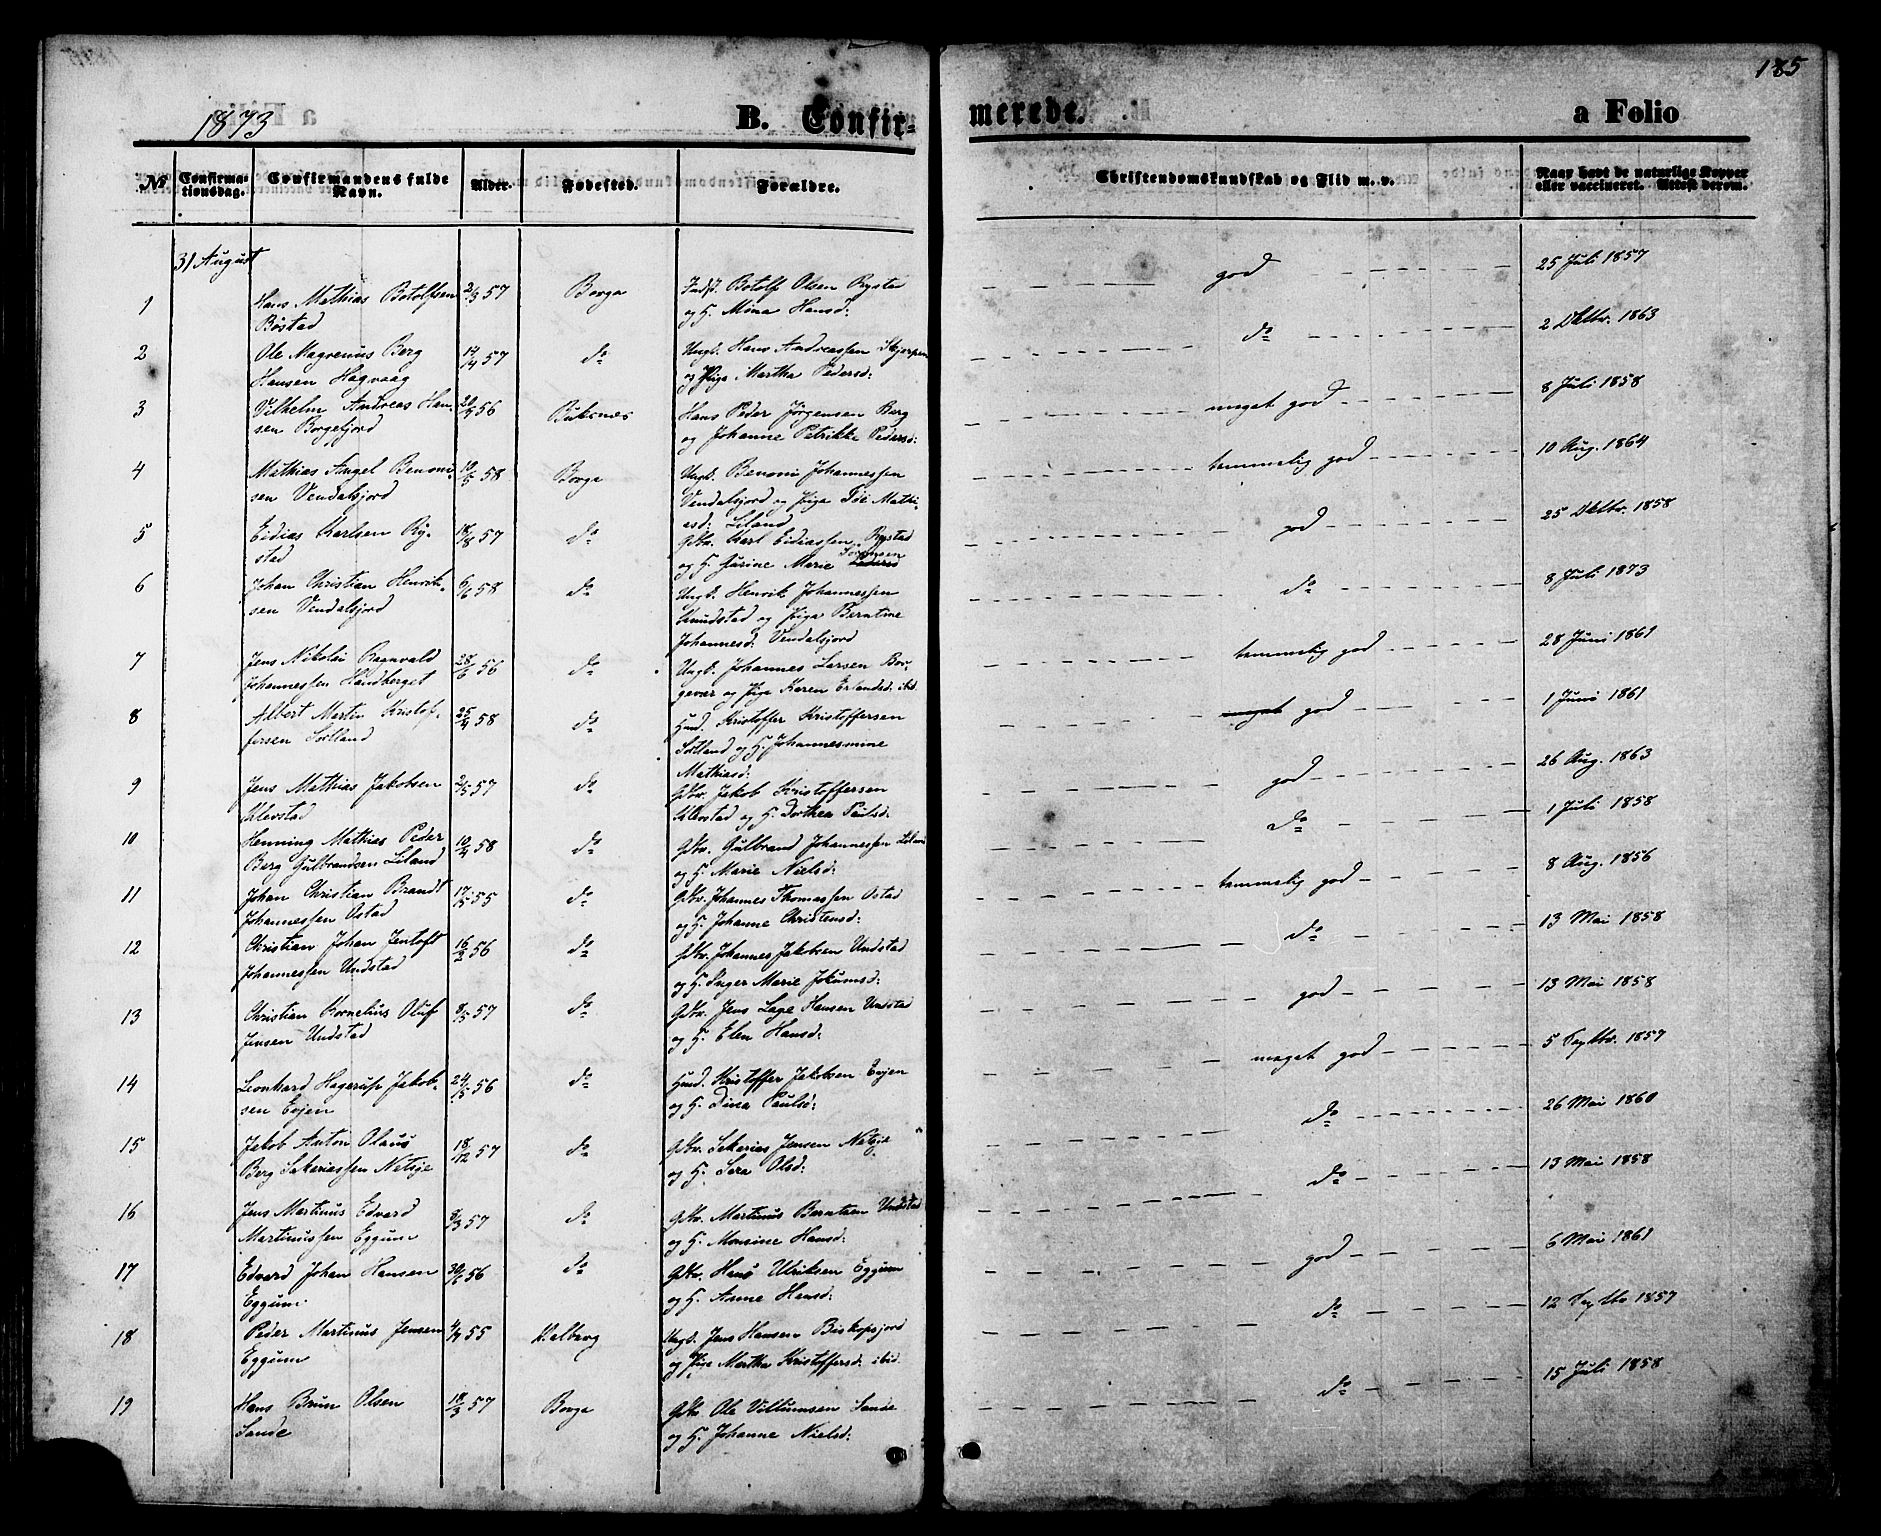 185
1873 B. Confirmerede. a Folio
No Confirmationsdag. Confirmandens fulde Navn. Alder. Fødested. Forældre. Christendomskundskab og Flid m. v. Naar havt de naturlige Kopper eller vaccineret. Attest derom.
31 August
1 Hans Mathias Botolfsen 2/3 57 Borge Indst. Botolf Olsen Rystad god 25 Juli 1857
Bøstad og H. Mina Hansd:
2 Ole Magrenius Berg 14/4 57 do Ungk. Hans Andreassen Skjerpen do 2 Oktbr. 1863
Hansen Hagvaag og Pige Martha Pedersd:
3 Vilhelm Andreas Han- 20/9 56 Buksnes Hans Peder Jørgensen Berg meget god 8 Juli 1858
sen Borgefjord og Johanne Petrikke Pedersd:
4 Mathias Angel Benoni- 10/5 58 Borge Ungk. Benoni Johannessen temmelig god 10 Aug. 1864
sen Vendalsjord Vendalsjord og Pige Mathi-
asd: Liland
5 Eidias Karlsen Ry- 18/8 57 do Gbr. Karl Eidiassen Rystad god 25 Oktbr. 1858
stad og H. Jurine Marie
6 Johan Christian Henrik- 6/6 58 do Ungk. Henrik Johannessen do 8 Juli 1873
sen Vendalsjord Knudstad og Pige Berntine
Johannesd. Vendalsjord
7 Jens Nikolai Ragnvald 28/6 56 do Ungk. Johannes Larsen Bor- temmelig god 28 Juni 1861
Johannessen Handberget gevær og Pige Karen Erlandsd. ibid.
8 Albert Martin Kristof- 25/4 58 do Husd. Kristoffer Kristoffersen meget god 1 Juni 1861
fersen Sortland Sortland og H. Johannesmine
Mathiasd:
9 Jens Mathias Jakobsen 2/5 57 do Gbr. Jakob Kristoffersen god 26 Aug. 1863
Klevstad Klevstad og H. Dorthea Paulsd:
10 Henning Mathias Peder 10/4 58 do Gbr. Gulbrand Johannessen Liland do 1 Juli 1858
Berg Gulbrandsen Liland og H. Marie Nielsd:
11 Johan Christian Brandt 17/5 55 do Gbr. Johannes Thomassen Ostad temmelig god 8 Aug. 1856
Johannessen Ostad og H. Johanne Christensd:
12 Christian Johan Jentoft 16/2 56 do Gbr. Johannes Jakobsen Undstad do 13 Mai 1858
Johannessen Undstad og H. Inger Marie Jokumsd:
13 Christian Kornelius Oluf 8/5 57 do Gbr. Jens Lage Hansen Undstad god 13 Mai 1858
Jensen Undstad og H. Elen Hansd:
14 Leonhard Hagerup Jakob- 24/5 56 do Husd. Kristoffer Jakobsen Evjen meget god 5 Septbr. 1857
sen Evjen og H. Dina Paulsd:
15 Jakob Anton Olaus 18/12 57 do Gbr. Sakarias Jensen Netsje do 26 Mai 1860
Berg Sakariassen Netsje og H. Sara Olsd:
16 Jens Martinus Edvard 8/3 57 do Gbr. Martinus Berntsen Undstad do 13 Mai 1858
Martinussen Eggum og H. Monsine Hansd:
17 Edvard Johan Hansen 30/6 56 do Gbr. Hans Ulriksen Eggum god 6 Mai 1861
Eggum. og H. Anne Hansd:
18 Peder Martinus Jensen 4/9 55 Valberg Ungk. Jens Hansen Biskopsjord do 12 Septbr 1857
Eggum og Pige Martha Kristoffersd. ibid.
19 Hans Brun Olsen 18/3 57 Borge Gbr. Ole Villumsen Sande do 15 Juli 1858
Sande og H. Johanne Nielsd: